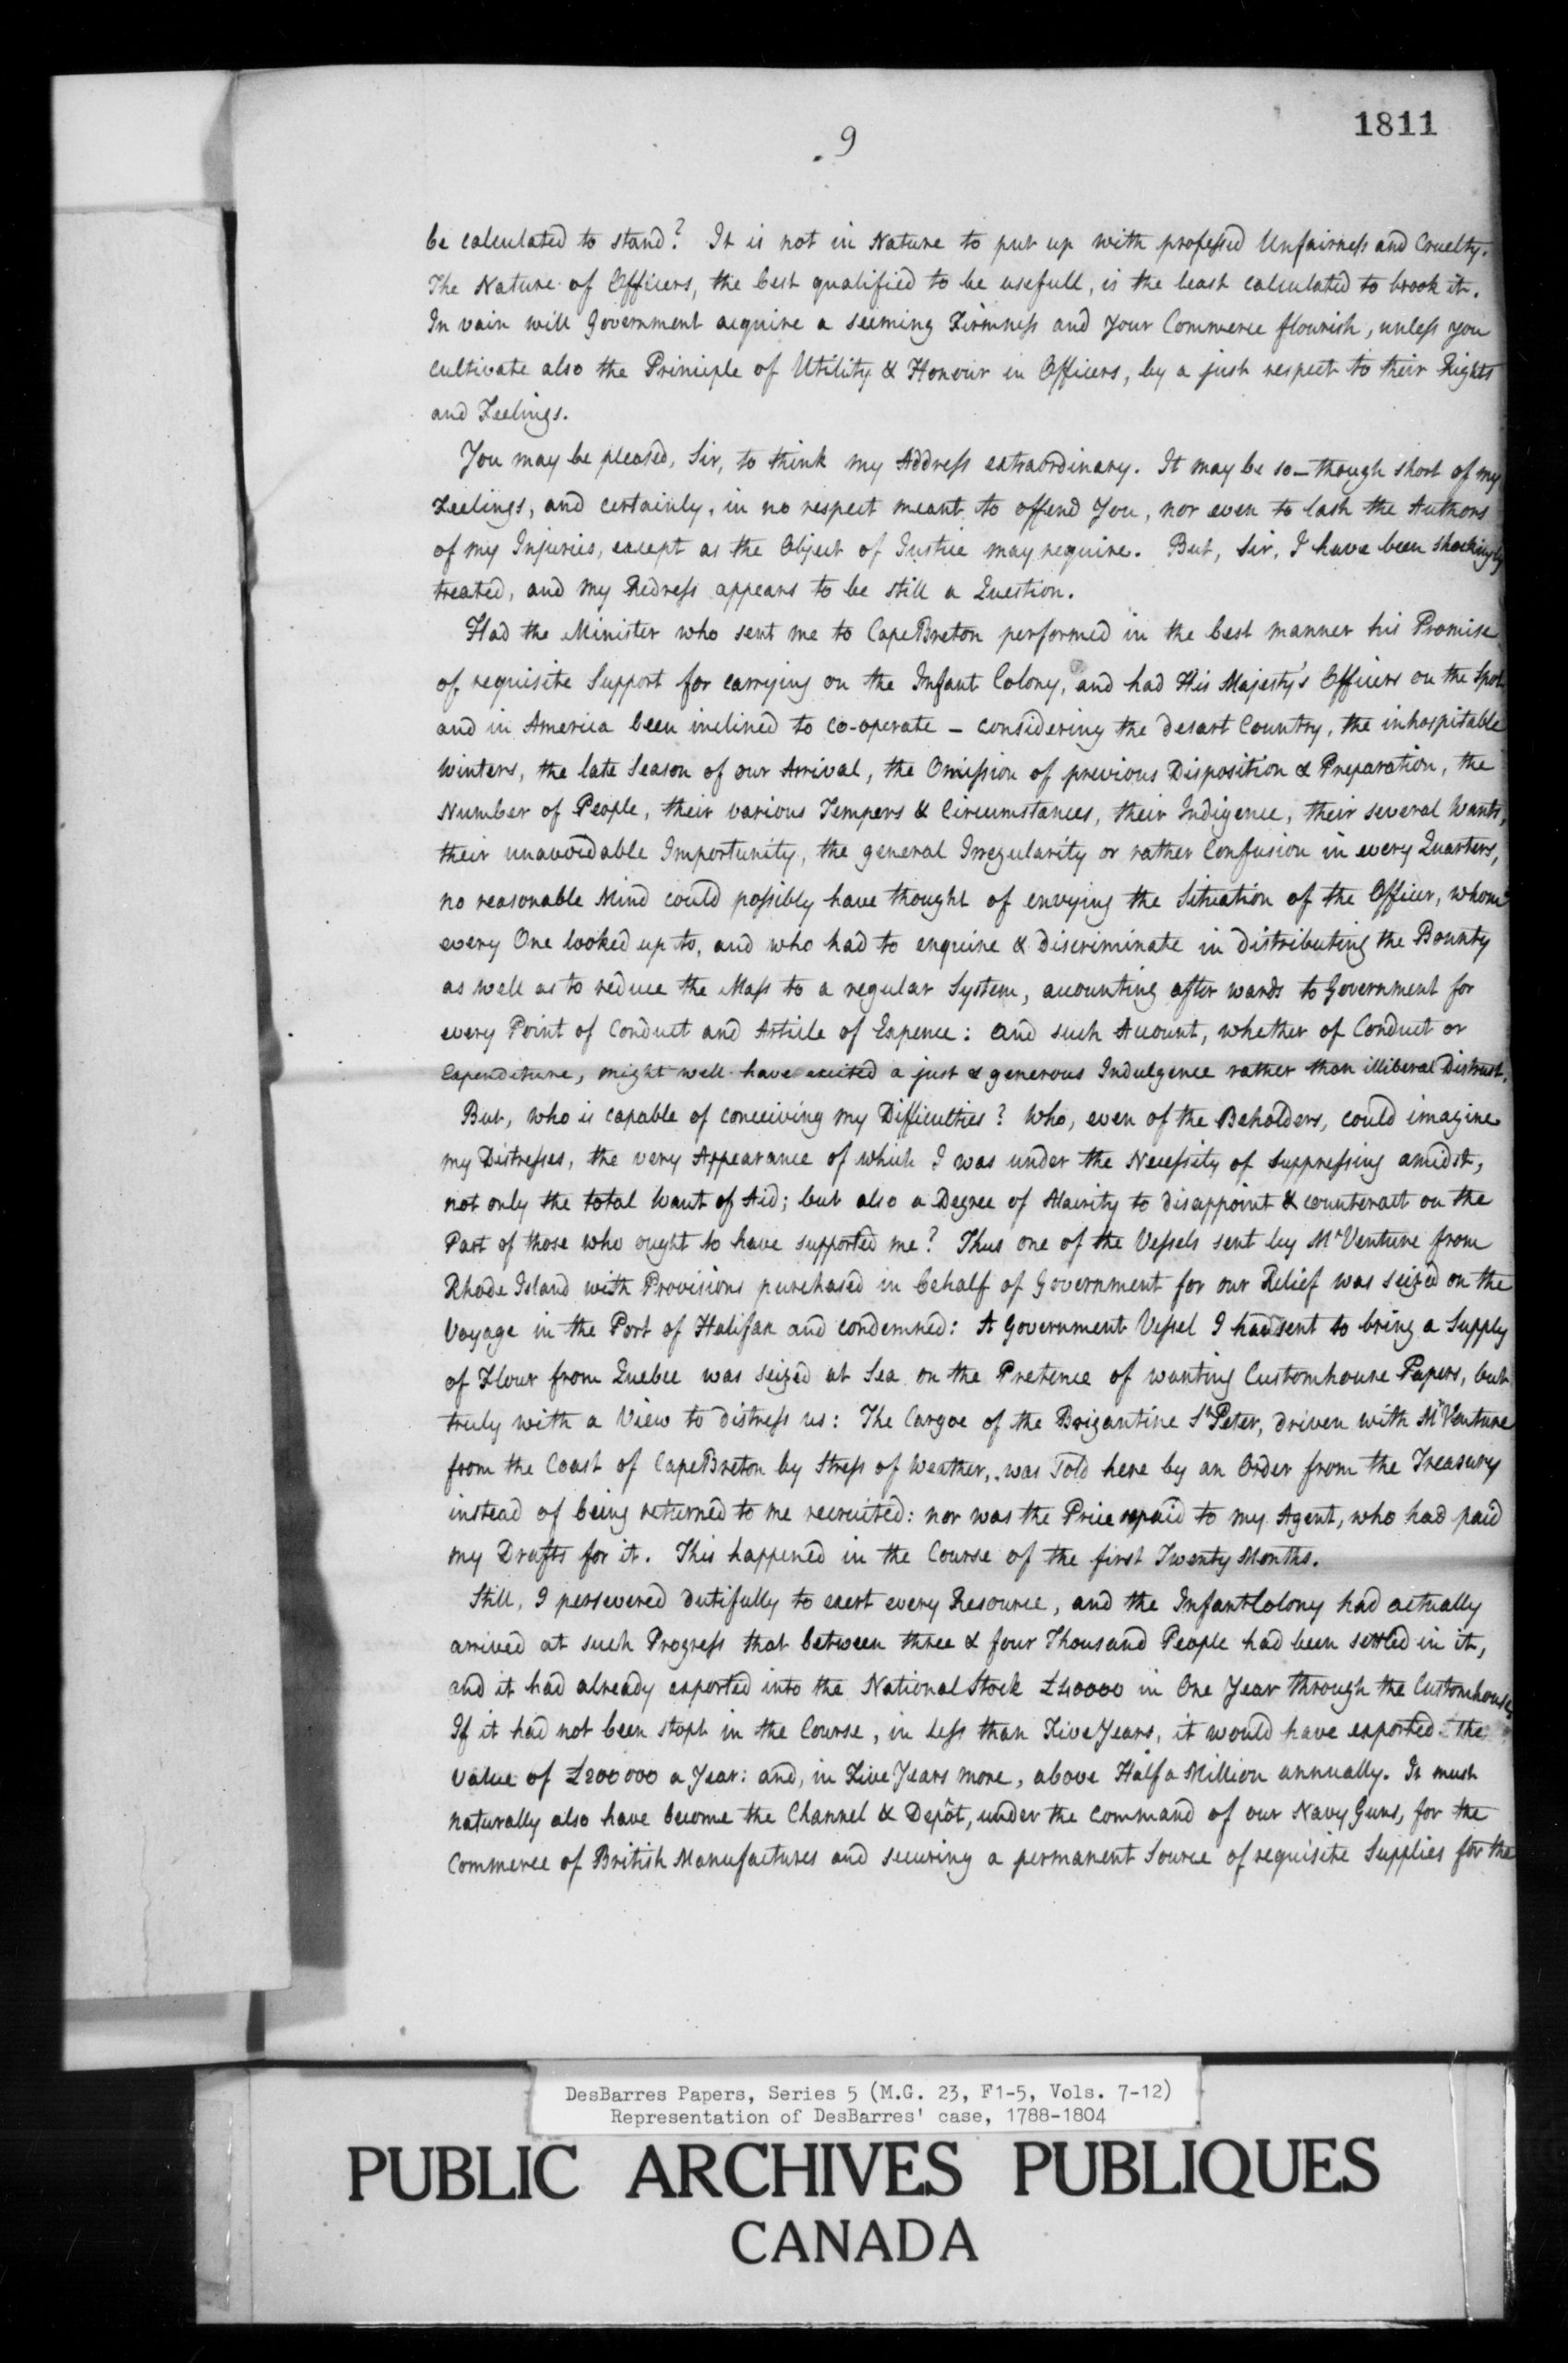 1811
9
be calculated to stand? It is not in Nature to put up with professed Unfairness and Cruelty.
The Nature of Officers, the best qualified to be usefull, is the least calculated to brook it.
In vain will Government acquire a seeming Firmness and Your Commerce flourish, unless you
cultivate also the Principle of Utility & Honour in Officers, by a just respect to their Rights
and Feelings.
You may be pleased, Sir, to think my Address extraordinary. It may be so – though short of my
Feelings, and certainly, in no respect meant to offend You, nor even to lash the Authors
of my Injuries, except as the Object of Justice may require. But, Sir, I have been shockingly
treated, and my Redress appears to be still a Question.
Had the Minister who sent me to CapeBreton performed in the best manner his Promise
of requisite Support for carrying on the Infant Colony, and had His Majesty's Officers on the Spot
and in America been inclined to co-operate – considering the desart Country, the inhospitable
Winters, the late Season of our Arrival, the Omission of previous Disposition & Preparation, the
Number of People, their various Tempers & Circumstances, their Indigence, their several Wants,
their unavoidable Importunity, the general Irregularity or rather Confusion in every Quarters,
no reasonable Mind could possibly have thought of envying the Situation of the Officer, whom
every One looked up to, and who had to enquire & discriminate in distributing the Bounty
as well as to reduce the Mass to a regular System, accounting after wards to Government for
every Point of Conduct and Article of Expence: and such Account, whether of Conduct or
Expenditure, might well have excited a just & generous Indulgence rather than illiberal Distrust.
But, who is capable of conceiving my Difficulties? Who, even of the Beholders, could imagine
my Distresses, the very Appearance of which I was under the Necessity of suppressing amidst,
not only the total Want of Aid; but also a Degree of Alacrity to disappoint & counteract on the
Part of those who ought to have supported me? Thus one of the Vessels sent by Mr Venture from
Rhode Island with Provisions purchased in behalf of Government for our Relief was seized on the
Voyage in the Port of Halifax and condemned: A Government Vessel I had sent to bring a Supply
of Flour from Quebec was seized at Sea on the Pretence of wanting Customhouse Papers, but
truly with a View to distress us: The Cargoe of the Brigantine St Peter, driven with Mr Venture
from the Coast of CapeBreton by Stress of Weather, was Sold here by an Order from the Treasury
instead of being returned to me recruited: nor was the Price repaid to my Agent, who had paid
my Drafts for it. This happened in the Course of the first Twenty Months.
Still, I persevered dutifully to exert every Resource, and the Infant Colony had actually
arrived at such Progress that between three & four Thousand People had been settled in it,
and it had already exported into the National Stock £40000 in One Year through the Customhouse,
If it had not been stopt in the Course, in Less than Five Years, it would have exported the
Value of £200000 a Year: and, in Five Years more, above Half a Million annually. It must
naturally also have become the Channel & Depôt, under the command of our Navy Guns, for the
Commerce of British Manufactures and securing a permanent Source of requisite Supplies for the
DesBarres Papers, Series 5 (M.G. 23, F1-5, Vols. 7-12)
Representation of DesBarres' case, 1788-1804
PUBLIC ARCHIVES PUBLIQUES
CANADA